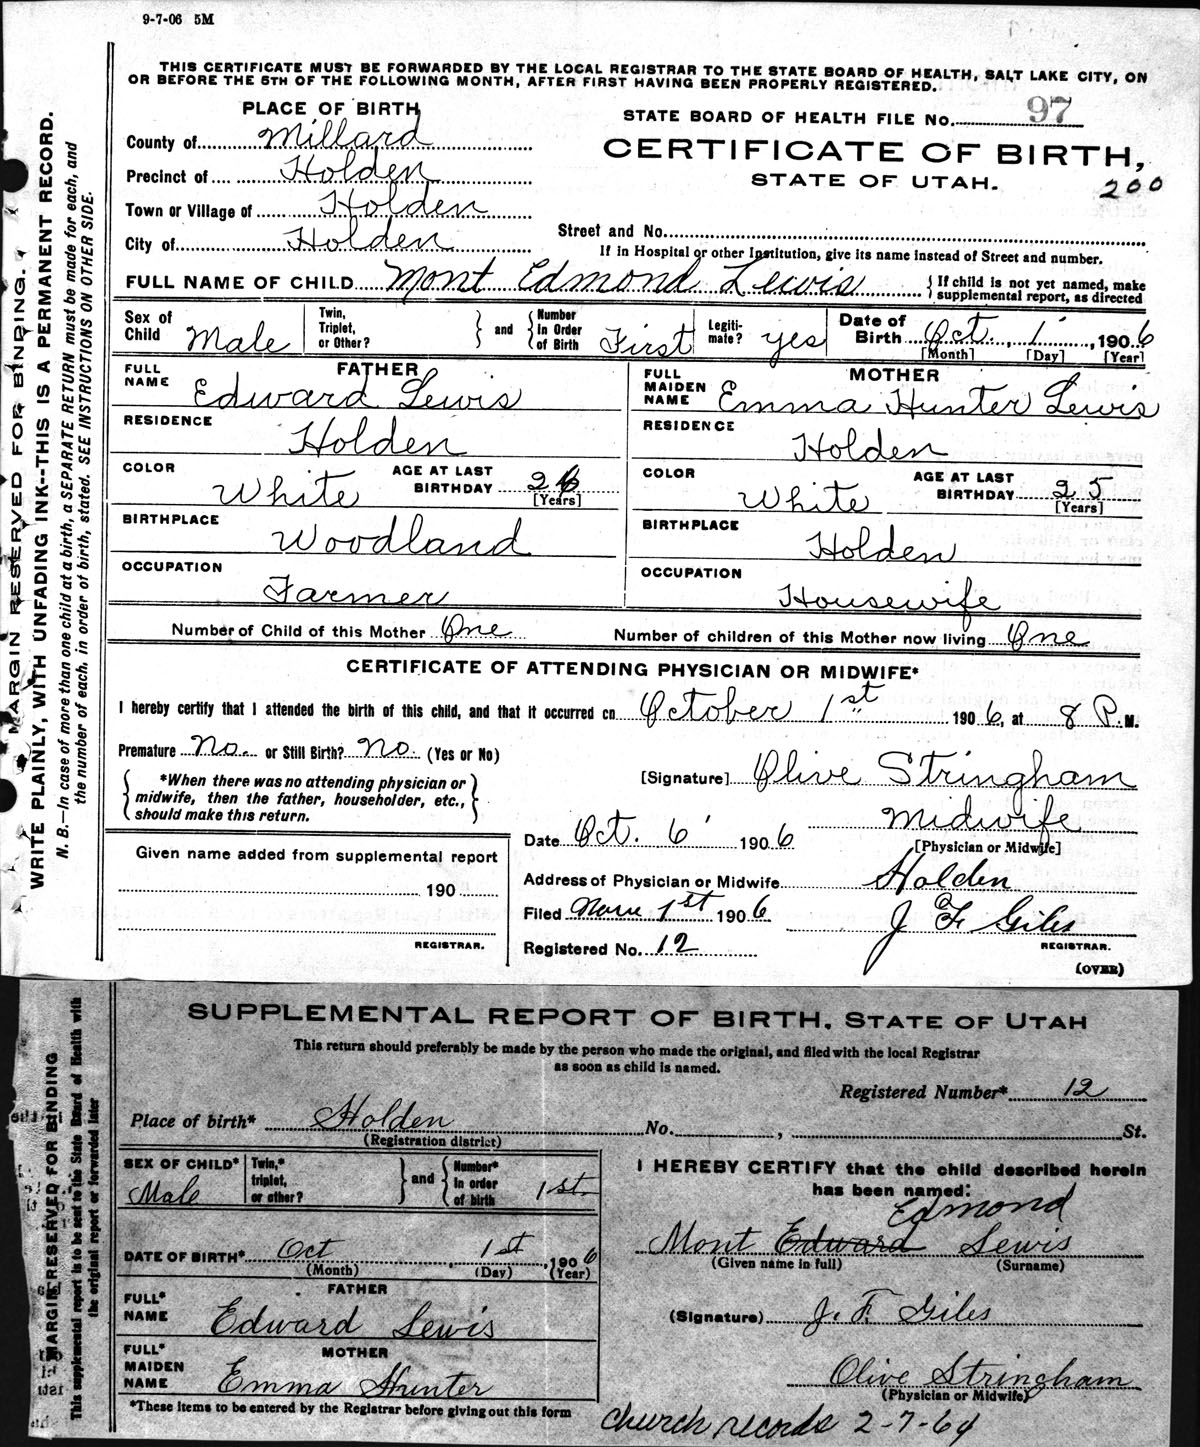 9-7-06 5M
THIS CERTIFICATE MUST BE FORWARDED BY THE LOCAL REGISTRAR TO THE STATE BOARD OF HEALTH, SALT LAKE CITY, ON
OR BEFORE THE 5TH OF THE FOLLOWING MONTH, AFTER FIRST HAVING BEEN PROPERLY REGISTERED.
MARGIN RESERVED FOR BINDING.
WRITE PLAINLY, WITH UNFADING INK--THIS IS A PERMANENT RECORD.
N. B.—In case of more than one child at a birth, a SEPARATE RETURN must be made for each, and
the number of each, in order of birth, stated. SEE INSTRUCTIONS ON OTHER SIDE.
PLACE OF BIRTH
County of Millard
Precinct of Holden
Town or Village of Holden
City of Holden
STATE BOARD OF HEALTH FILE No. 97
CERTIFICATE OF BIRTH,
STATE OF UTAH.
200
Street and No.
If in Hospital or other Institution, give its name instead of Street and number.
FULL NAME OF CHILD Mont Edmond Lewis { If child is not yet named, make
supplemental report, as directed
Sex of Child Male
Twin, Triplet, or Other? } and { Number In Order of Birth First
Legiti- mate? yes
Date of Birth Oct. 1, 1906
[Month] [Day] [Year]
FATHER
FULL NAME Edward Lewis
RESIDENCE Holden
COLOR White AGE AT LAST BIRTHDAY 26 [Years]
BIRTHPLACE Woodland
OCCUPATION Farmer
MOTHER
FULL MAIDEN NAME Emma Hunter Lewis
RESIDENCE Holden
COLOR White AGE AT LAST BIRTHDAY 25 [Years]
BIRTHPLACE Holden
OCCUPATION Housewife
Number of Child of this Mother One Number of children of this Mother now living One
CERTIFICATE OF ATTENDING PHYSICIAN OR MIDWIFE*
I hereby certify that I attended the birth of this child, and that it occurred on October 1st 1906, at 8 P. M.
Premature No. or Still Birth? No. (Yes or No)
{ *When there was no attending physician or
midwife, then the father, householder, etc.,
should make this return. }
[Signature] Olive Stringham
Midwife
[Physician or Midwife]
Date Oct. 6 1906
Address of Physician or Midwife Holden
Filed 1st 1906 J F Giles
REGISTRAR.
Registered No. 12
(OVER)
Given name added from supplemental report
190
REGISTRAR.
MARGIN RESERVED FOR BINDING
This supplemental report is to be sent to the State Board of Health with
the original report or forwarded later
SUPPLEMENTAL REPORT OF BIRTH, STATE OF UTAH
This return should preferably be made by the person who made the original, and filed with the local Registrar
as soon as child is named.
Registered Number* 12
Place of birth* Holden No. , St.
(Registration district)
SEX OF CHILD* Male
Twin,* triplet, or other? } and { Number* in order of birth 1st
DATE OF BIRTH* Oct 1st, 1906
(Month) (Day) (Year)
FATHER
FULL* NAME Edward Lewis
MOTHER
FULL* MAIDEN NAME Emma Hunter
*These items to be entered by the Registrar before giving out this form
I HEREBY CERTIFY that the child described herein
has been named:
Edmond
Mont Edward Lewis
(Given name in full) (Surname)
(Signature) J. F. Giles
Olive Stringham
(Physician or Midwife)
church records 2-7-64